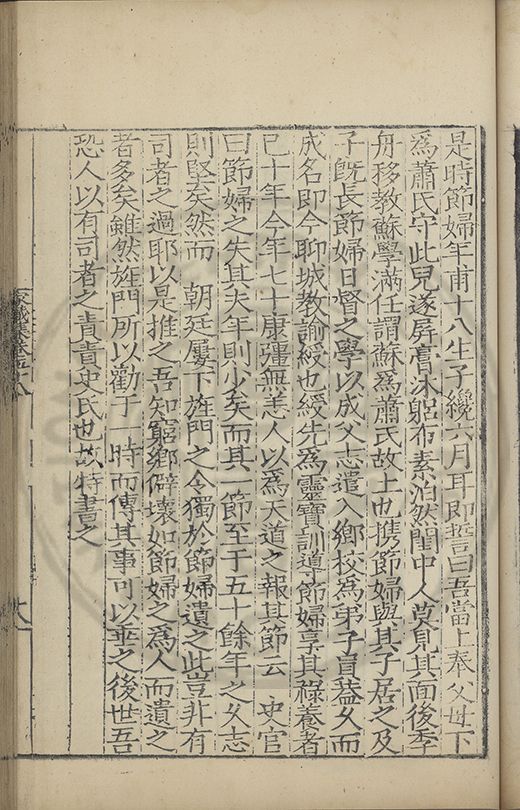 是時節婦年甫十八生子纔六月耳即誓曰吾當上奉父母下
爲蕭氏守此兒遂屏膏沐躬布素泊然閨中人莫見其面後季
舟移教蘇學滿任謂蘇爲蕭氏故上也携節婦與其子居之及
子既長節婦日督之學以成父志遣入鄉校爲弟子員益久而
成名即今聊城教諭綬也綬先爲靈寶訓導節婦享其祿養者
已十年今年七十康彊無恙人以爲天道之報其節云　史官
曰節婦之失其夫年則少矣而其一節至于五十餘年之久志
則堅矣然而　朝廷屢下旌門之令獨於節婦遺之此豈非有
司者之過耶以是推之吾知窮鄉僻壤如節婦之爲人而遺之
者多矣雖然旌門所以勸于一時而傳其事可以垂之後世吾
恐人以有司者之責責史氏也故特書之